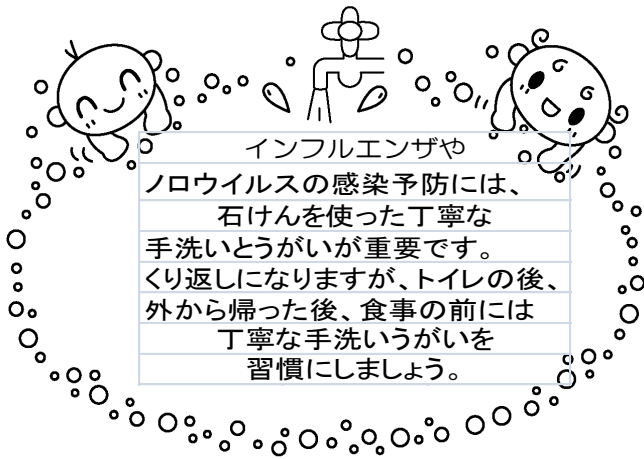 インフルエンザや
ノロウイルスの感染予防には、
石けんを使った丁寧な
手洗いとうがいが重要です。
くり返しになりますが、トイレの後、
外から帰った後、食事の前には
丁寧な手洗いうがいを
習慣にしましょう。